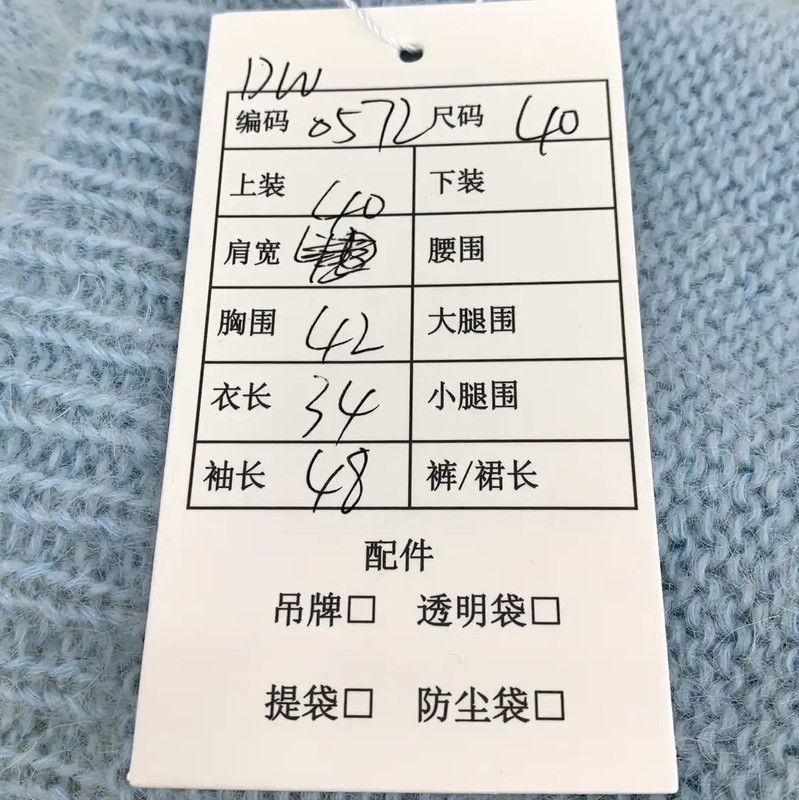 DW
编码 0572 尺码 40
上装 下装
肩宽 40 腰围
胸围 42 大腿围
衣长 34 小腿围
袖长 48 裤/裙长
配件
吊牌□ 透明袋□
提袋□ 防尘袋□